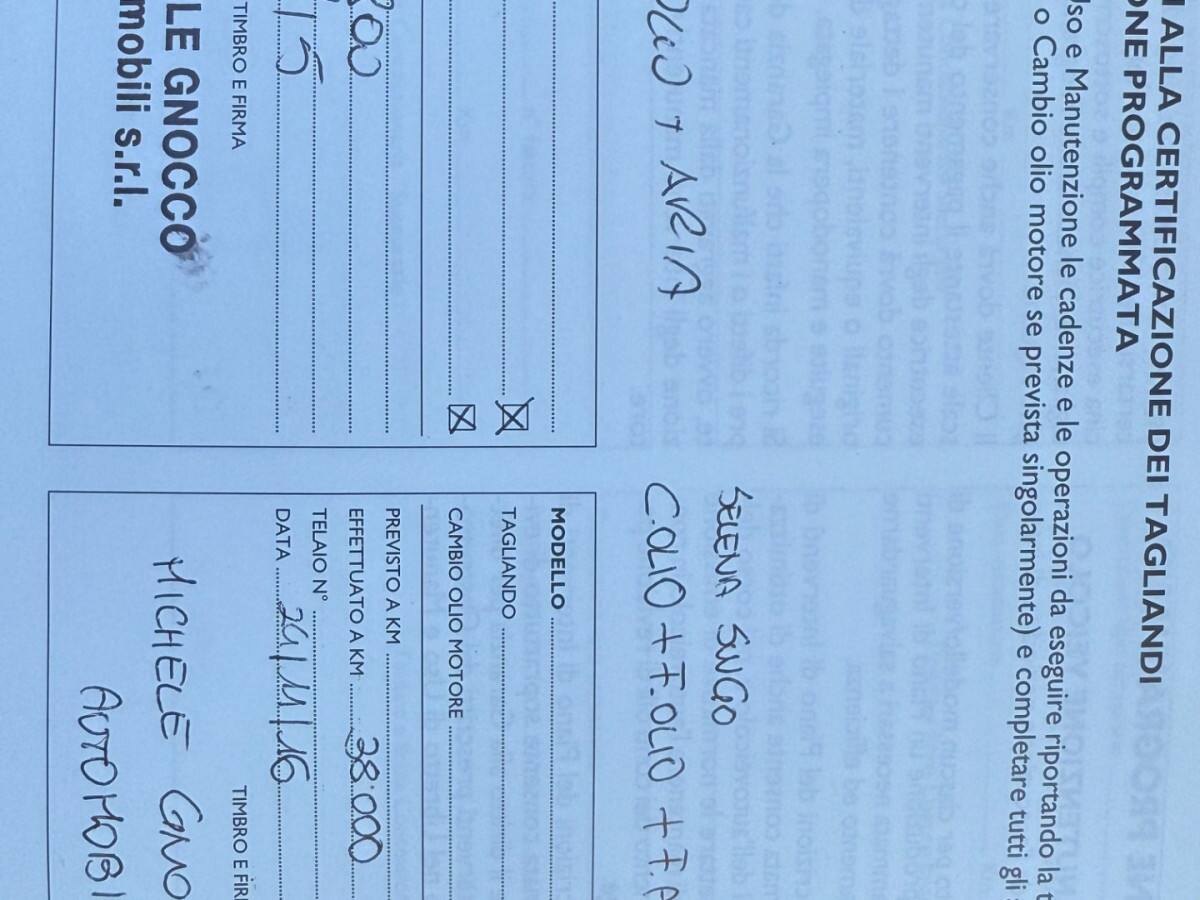 I ALLA CERTIFICAZIONE DEI TAGLIANDI
ONE PROGRAMMATA
so e Manutenzione le cadenze e le operazioni da eseguire riportando la t
o Cambio olio motore se prevista singolarmente) e completare tutti gli
+ ARIA
TIMBRO E FIRMA
LE GNOCCO
mobili s.r.l.
SELENA SUNGO
C.OLIO + F.OLIO + F.A
MODELLO
TAGLIANDO
CAMBIO OLIO MOTORE
PREVISTO A KM
EFFETTUATO A KM 38.000
TELAIO N°
DATA 29/11/16
TIMBRO E FIR
MICHELE GNO
AUTOMOBI